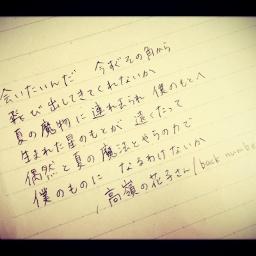 会いたいんだ 今すぐその角から
飛び出してきてくれないか
夏の魔物に連れ去られ 僕のもとへ
生まれた星のもとが 違くたって
偶然と夏の魔法とやらの力で
僕のものに なるわけないか
高嶺の花子さん/back number